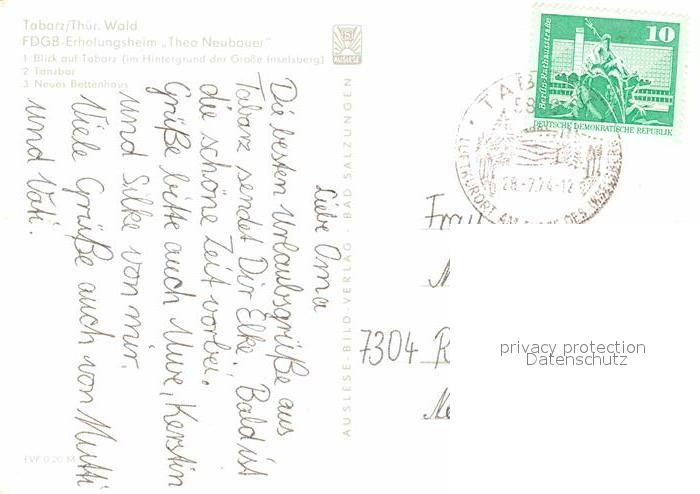 Tabarz/Thür. Wald
FDGB-Erholungsheim „Theo Neubauer"
1 Blick auf Tabarz (im Hintergrund der Große Inselsberg)
2 Tanzbar
3 Neues Bettenhaus
AUSLESE
Liebe Oma
Die besten Urlaubsgrüße aus
Tabarz sendet Dir Elke. Bald ist
die schöne Zeit vorbei.
Grüße bitte auch Uwe, Kerstin
und Silke von mir.
Viele Grüße auch von Mutti
und Vati.
AUSLESE-BILD-VERLAG · BAD SALZUNGEN
EVP 0,20 M
10
Berlin-Rathausstraße
DEUTSCHE DEMOKRATISCHE REPUBLIK
28.-7.74-12
LUFTKURORT AM DES
Frau
7304
privacy protection
Datenschutz